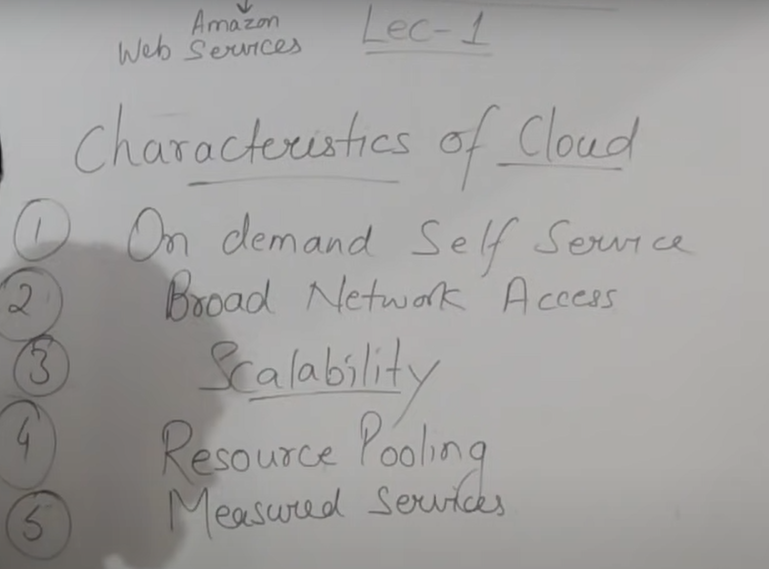 Amazon
Web Services
Lec-1
Characteristics of Cloud
1 On demand Self Service
2 Broad Network Access
3 Scalability
4 Resource Pooling
5 Measured Services